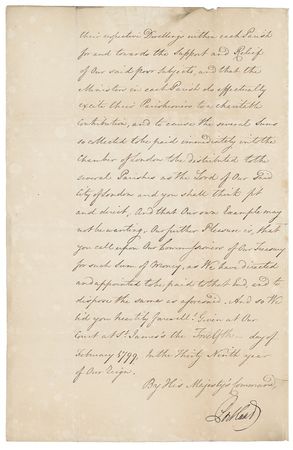 their respective Dwellings within each Parish
for and towards the Support and Relief
of Our said poor Subjects, and that the
Ministers in each Parish do effectually
excite their Parishioners to a charitable
Contribution, and to cause the several Sums
so collected to be paid immediately into the
Chamber of London to be distributed to the
several Parishes as the Lord of Our said
City of London and you shall think fit
and direct, And that Our own Example may
not be wanting, Our further Pleasure is, that
you call upon Our Commissioners of Our Treasury
for such Sum of Money, as We have directed
and appointed to be paid to that End, and to
dispose the same as aforesaid. And so We
bid you heartily farewell. Given at Our
Court at St. James's the Twelfth day of
February 1799. In the Thirty Ninth year
of Our Reign.
By His Majesty's Command,
Portland